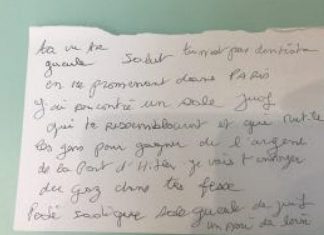 ta vu ta
gueule salut
en se promenant dans PARIS
j'ai rencontré un sale juif
qui te ressemblaient et que
les gens pour gagner de l'argent
de la Part d'Hitler je vais t'envoyer
du gaz dans tes fesse
sale gueule de juif
un